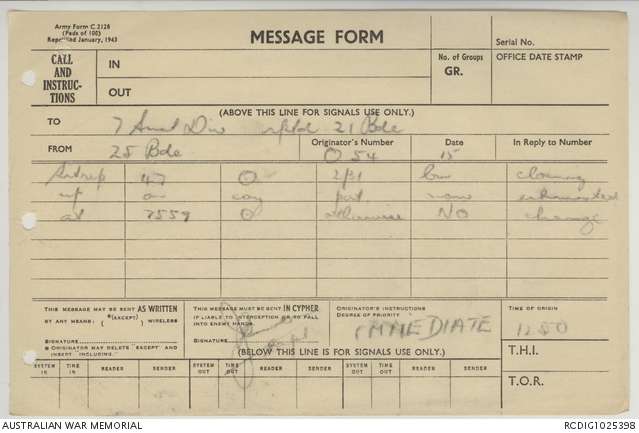 Army Form C.2128
(Pads of 100)
Reprinted January, 1943
MESSAGE FORM
Serial No.
CALL AND INSTRUC-TIONS
IN
OUT
No. of Groups
GR.
OFFICE DATE STAMP
(ABOVE THIS LINE FOR SIGNALS USE ONLY.)
TO 7 Aust Div rptd 21 Bde
FROM Originator's Number Date In Reply to Number
25 Bde O 54 15
Sitrep 47 O 2/31 Bn closing
up on coy now
at 7559 O otherwise NO change
THIS MESSAGE MAY BE SENT AS WRITTEN
BY ANY MEANS: { *(EXCEPT) } WIRELESS
SIGNATURE
* ORIGINATOR MAY DELETE "EXCEPT" AND INSERT "INCLUDING."
THIS MESSAGE MUST BE SENT IN CYPHER
IF LIABLE TO INTERCEPTION OR TO FALL INTO ENEMY HANDS.
SIGNATURE
ORIGINATOR'S INSTRUCTIONS
DEGREE OF PRIORITY
IMMEDIATE
TIME OF ORIGIN
1250
(BELOW THIS LINE IS FOR SIGNALS USE ONLY.)
T.H.I.
T.O.R.
SYSTEM IN TIME IN READER SENDER SYSTEM OUT TIME OUT READER SENDER SYSTEM OUT TIME OUT READER SENDER
AUSTRALIAN WAR MEMORIAL
RCDIG1025398